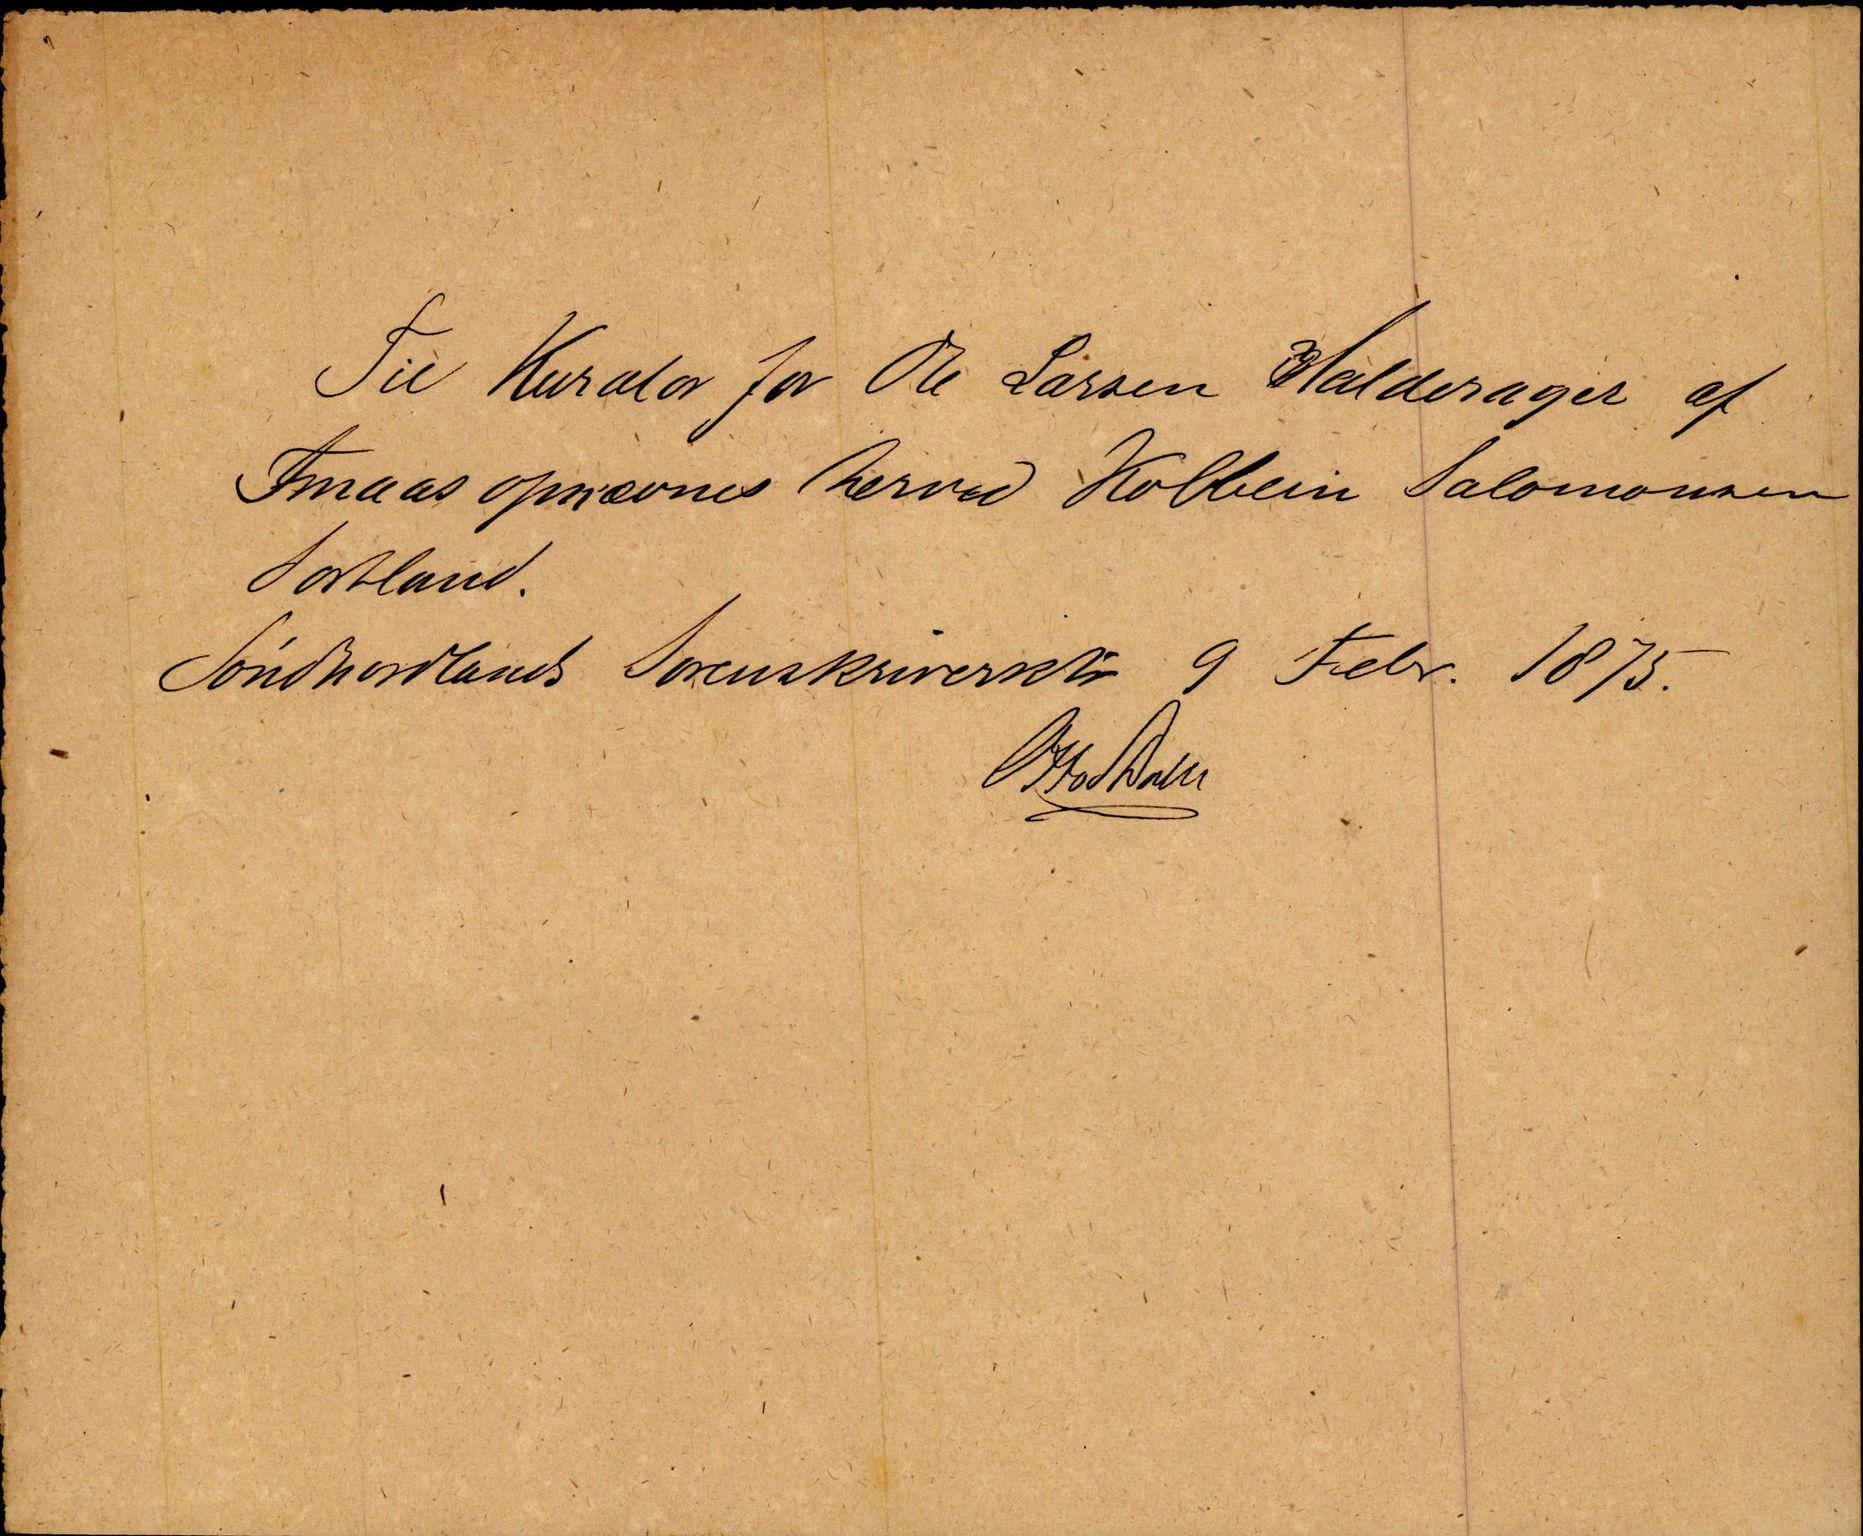 Til Kurator for Ole Larsen Halderager af
Fmaas opnævnes herved Kolbein Salomonsen
Sortland.
Söndhordlands Sorenskriverktr 9 Febr. 1875.